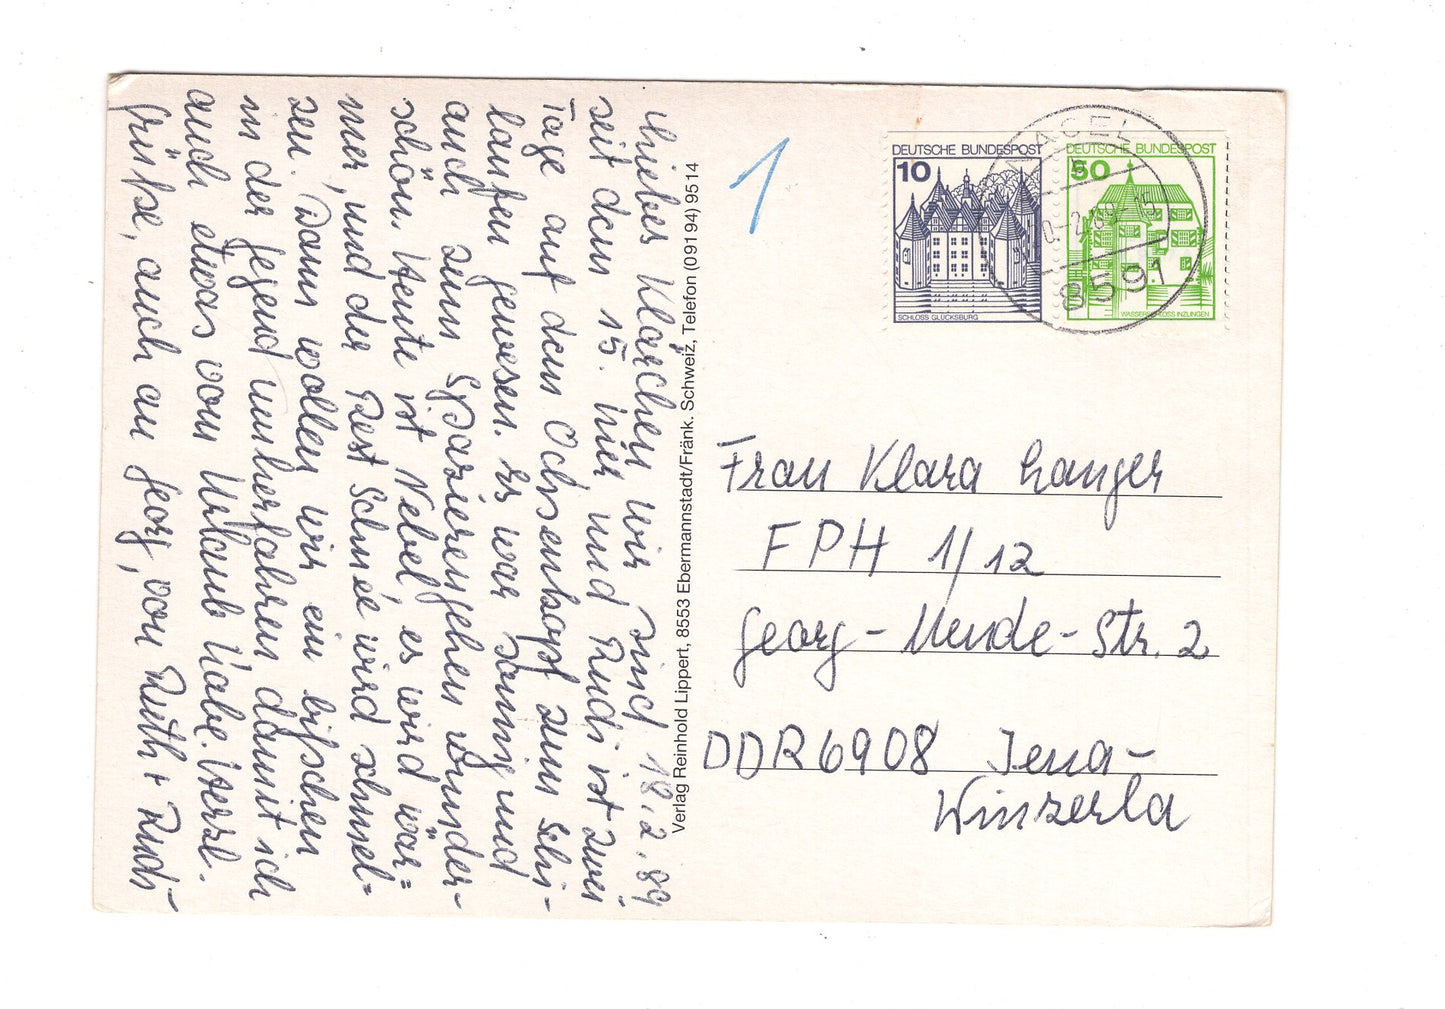 18.2.89
Liebes Klärchen wir sind
seit dem 15. hier und Rudi ist zwei
Tage auf dem Ochsenkopf zum Schi-
laufen gewesen. Es war sonnig und
auch zum Spazierengehen wunder-
schön. Heute ist Nebel, es wird wär=
mer, und der Rest Schnee wird schmel=
zen. Dann wollen wir ein bißchen
in der Gegend umherfahren damit ich
auch etwas vom Urlaub habe. Herzl.
Grüße, auch an Georg, von Ruth + Rudi
Verlag Reinhold Lippert, 8553 Ebermannstadt/Fränk. Schweiz, Telefon (09194) 9514
1
DEUTSCHE BUNDESPOST
10
SCHLOSS GLÜCKSBURG
DEUTSCHE BUNDESPOST
50
WASSERSCHLOSS INZLINGEN
NAGEL
8591
Frau Klara Langer
FPH 1/12
Georg-Mende-Str. 2
DDR 6908 Jena-
Winzerla